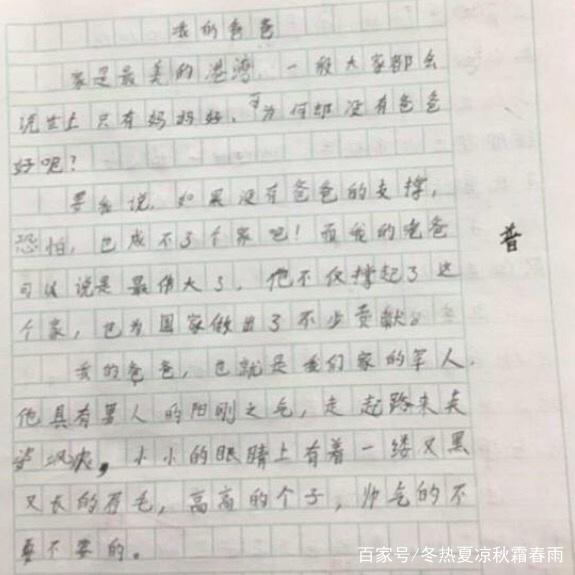 我的爸爸
家是最美的港湾，一般大家都会
说世上只有妈妈好、可为何却没有爸爸
好呢？
要我说，如果没有爸爸的支撑，
恐怕，也成不了个家吧！而我的爸爸
可以说是最伟大了，他不仅撑起了这
个家，也为国家做出了不少贡献。
我的爸爸，也就是我们家的军人，
他具有男人的阳刚之气，走起路来
小小的眼睛上有着一缕又黑
又长的眉毛，高高的个子，帅气的不
要不要的。
普
百家号/冬热夏凉秋霜春雨